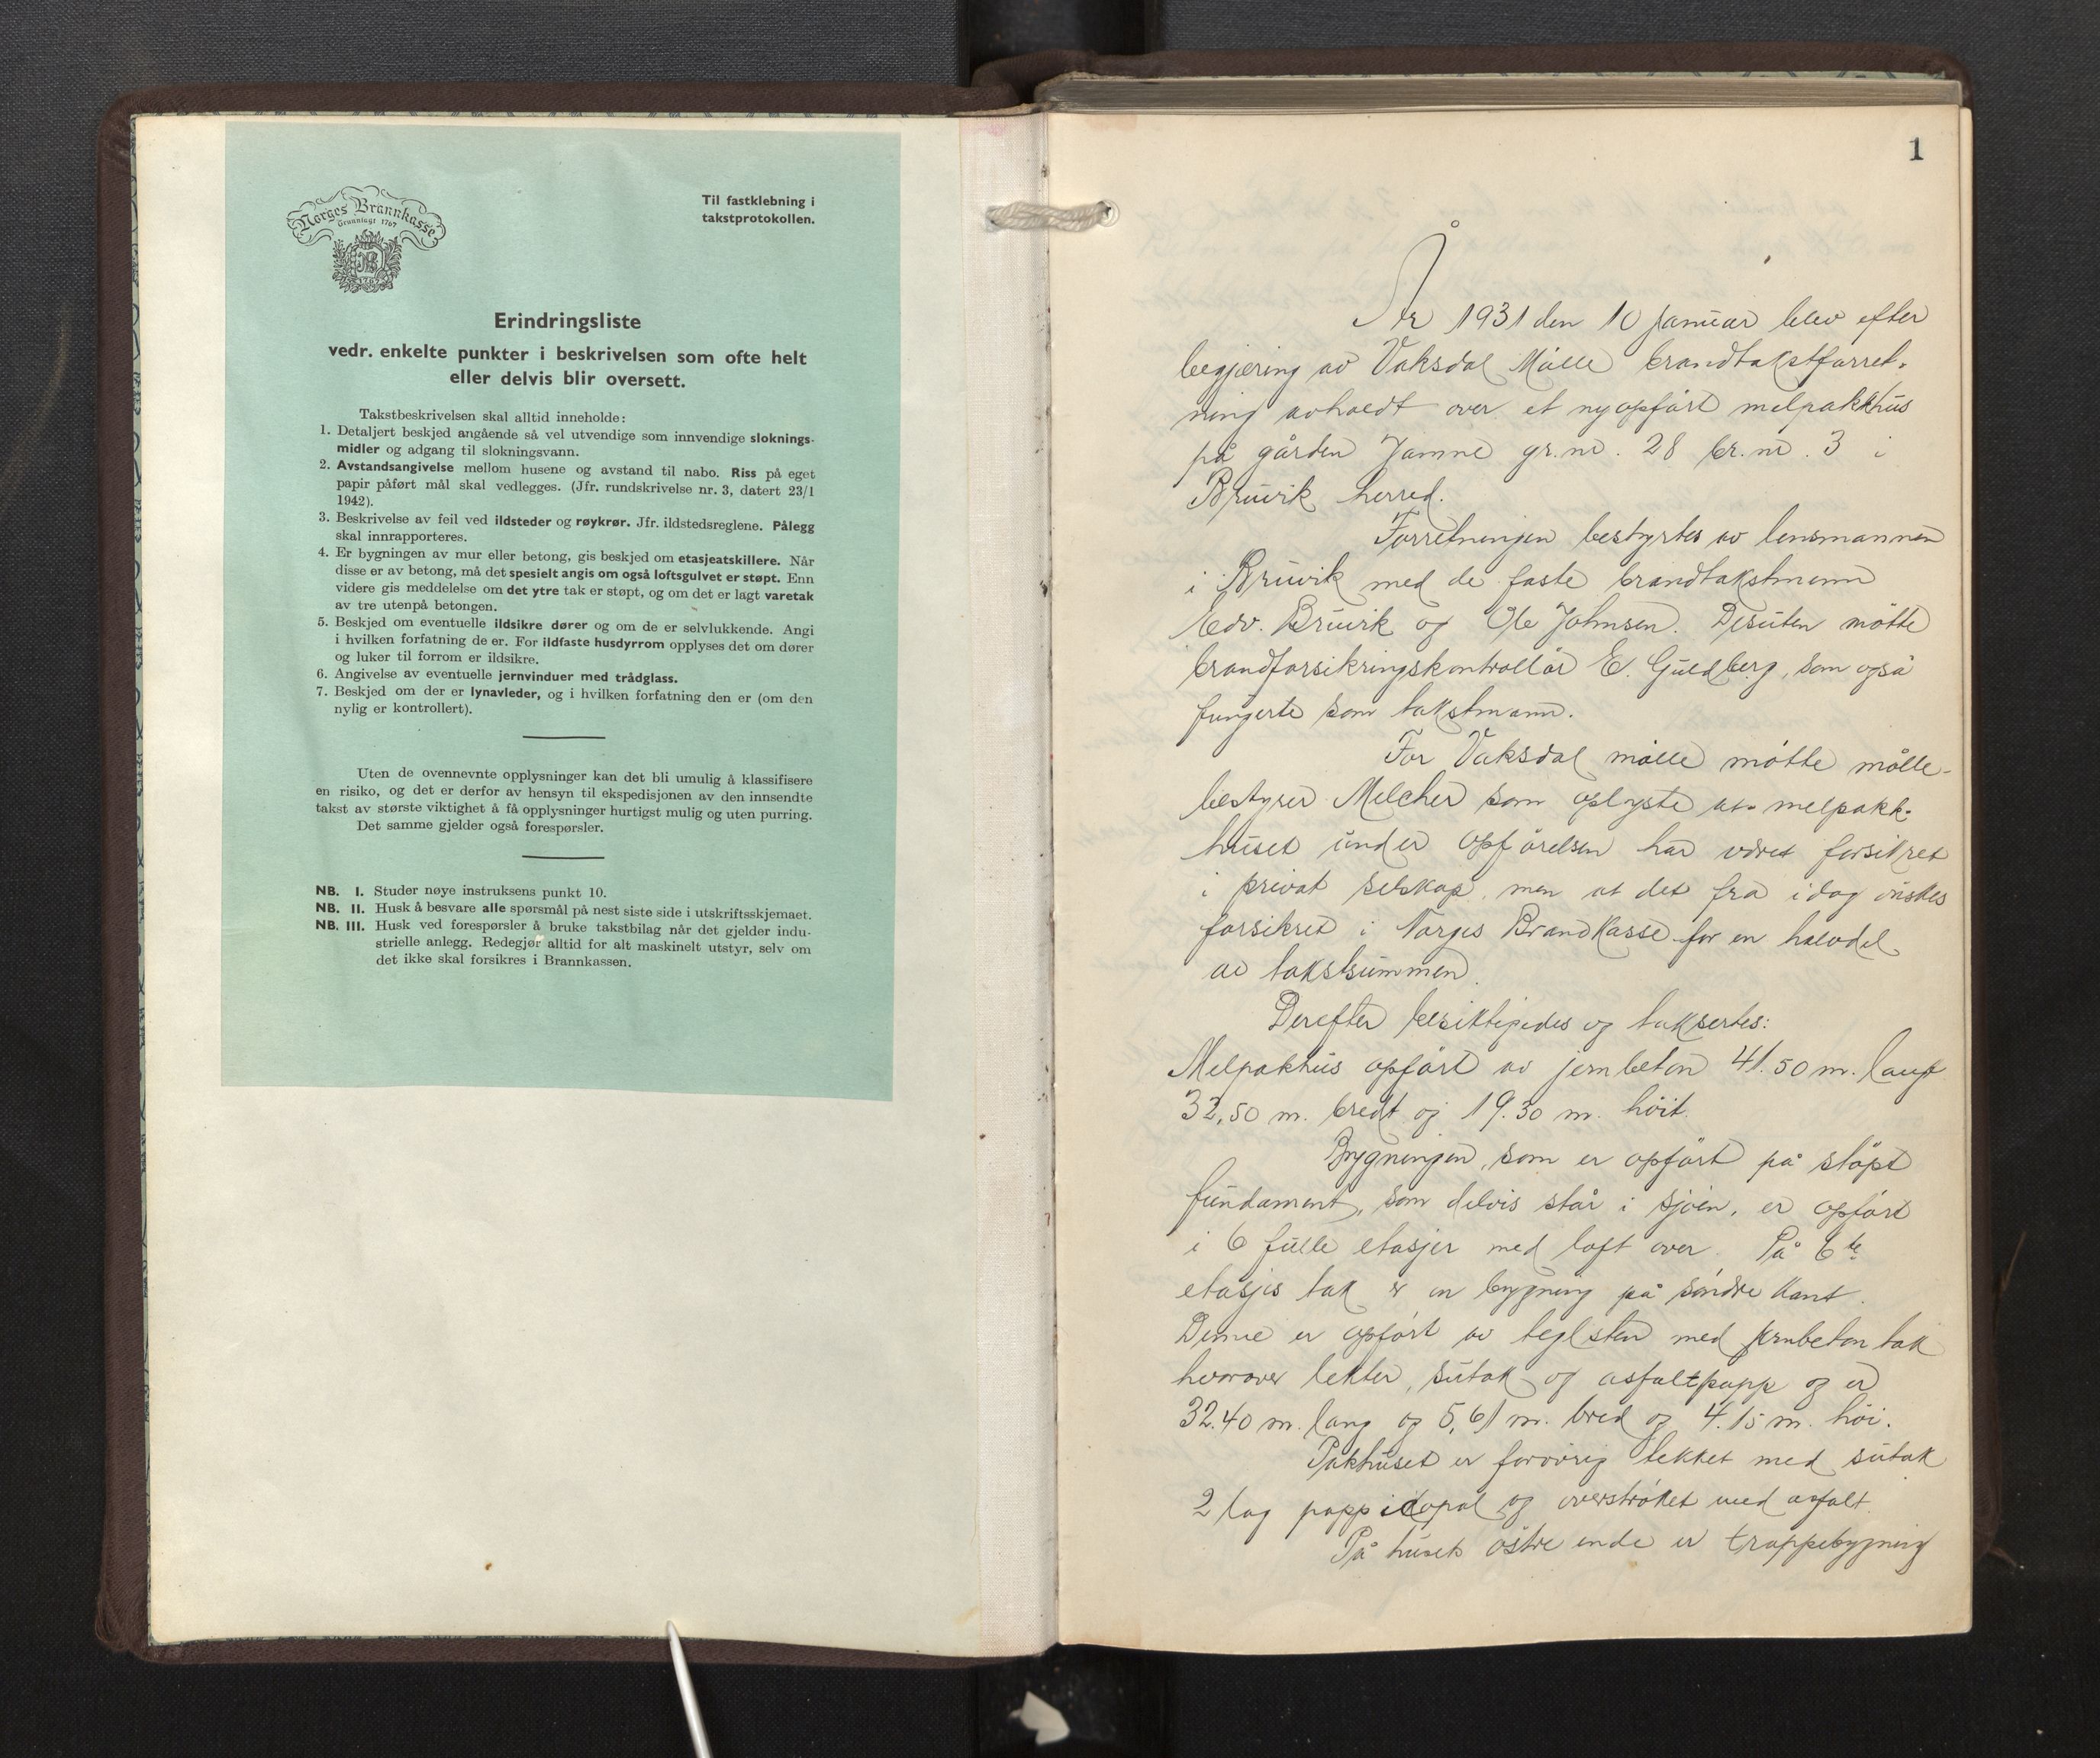 Norges Brannkasse
Grunnlagt 1767
1767
Til fastklebning i
takstprotokollen.
Erindringsliste
vedr. enkelte punkter i beskrivelsen som ofte helt
eller delvis blir oversett.
Takstbeskrivelsen skal alltid inneholde:
1. Detaljert beskjed angående så vel utvendige som innvendige sloknings-
midler og adgang til slokningsvann.
2. Avstandsangivelse mellom husene og avstand til nabo. Riss på eget
papir påført mål skal vedlegges. (Jfr. rundskrivelse nr. 3, datert 23/1
1942).
3. Beskrivelse av feil ved ildsteder og røykrør. Jfr. ildstedsreglene. Pålegg
skal innrapporteres.
4. Er bygningen av mur eller betong, gis beskjed om etasjeatskillere. Når
disse er av betong, må det spesielt angis om også loftsgulvet er støpt. Enn
videre gis meddelelse om det ytre tak er støpt, og om det er lagt varetak
av tre utenpå betongen.
5. Beskjed om eventuelle ildsikre dører og om de er selvlukkende. Angi
i hvilken forfatning de er. For ildfaste husdyrrom opplyses det om dører
og luker til forrom er ildsikre.
6. Angivelse av eventuelle jernvinduer med trådglass.
7. Beskjed om der er lynavleder, og i hvilken forfatning den er (om den
nylig er kontrollert).
Uten de ovennevnte opplysninger kan det bli umulig å klassifisere
en risiko, og det er derfor av hensyn til ekspedisjonen av den innsendte
takst av største viktighet å få opplysninger hurtigst mulig og uten purring.
Det samme gjelder også forespørsler.
NB. I. Studer nøye instruksens punkt 10.
NB. II. Husk å besvare alle spørsmål på nest siste side i utskriftsskjemaet.
NB. III. Husk ved forespørsler å bruke takstbilag når det gjelder indu-
strielle anlegg. Redegjør alltid for alt maskinelt utstyr, selv om
det ikke skal forsikres i Brannkassen.
1
År 1931 den 10 januar blev efter
begjæring av Vaksdal Mølle brandtakstforret-
ning avholdt over et nyopført melpakkhus
på gården Jamne gr.nr. 28 br.nr. 3 i
Bruvik herred.
Forretningen bestyrtes av lensmannen
i Bruvik med de faste brandtakstmenn
Edv. Bruvik og Ole Johnsen. Desuten møtte
brandforsikringskontrollør E. Guldberg, som også
fungerte som takstmann.
For Vaksdal mølle møtte mølle-
bestyrer Melcher som oplyste at melpakk-
huset under opførelsen har været forsikret
i privat selskap, men at det fra idag ønskes
forsikret i Norges Brandkasse for en halvdel
av takstsummen.
Derefter besiktigedes og taksertes:
Melpakhus opført av jernbeton 41.50 m. langt
32,50 m. bredt og 19.30 m. høit.
Bygningen, som er opført på støpt
fundament, som delvis står i sjøen, er opført
i 6 fulle etasjer med loft over. På 6te
etasjes tak er en bygning på søndre kant.
Denne er opført av teglsten med jernbeton tak
hvorover lekter, sutak og asfaltpapp og er
32.40 m. lang og 5,61 m. bred og 4.15 m. høi.
Pakhuset er forøvrig tekket med sutak
2 lag papp i opal og overstrøket med asfalt.
På husets østre ende er trappebygning